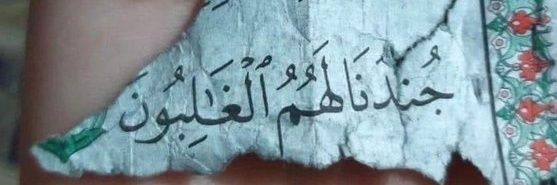 جُندَنَا لَهُمُ ٱلْغَٰلِبُونَ